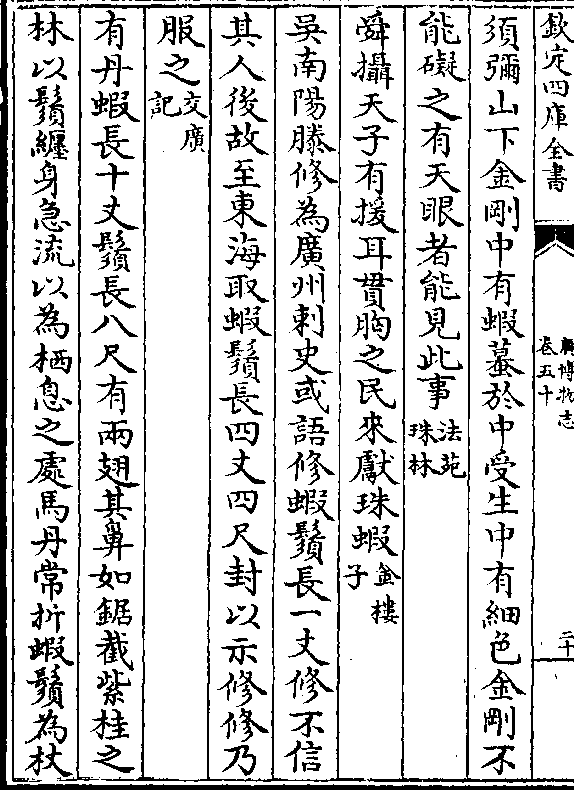 欽定四庫全書
廣博物志
卷五十
二十
須彌山下金剛中有蝦蟇於中受生中有細色金剛不
能礙之有天眼者能見此事法苑珠林
舜攝天子有援耳貫胸之民來獻珠蝦金樓子
吳南陽滕修為廣州刺史或語修蝦鬚長一丈修不信
其人後故至東海取蝦鬚長四丈四尺封以示修修乃
服之交廣記
有丹蝦長十丈鬚長八尺有兩翅其鼻如鋸截紫桂之
林以鬚纏身急流以為栖息之處馬丹常折蝦鬚為杖